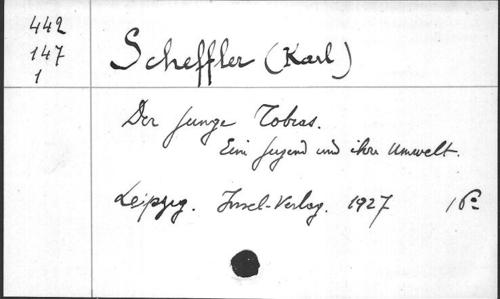 442
147
1
Scheffler (Karl)
Der junge Tobias.
Eine Jugend und ihre Umwelt.
Leipzig. Insel-Verlag. 1927 16°